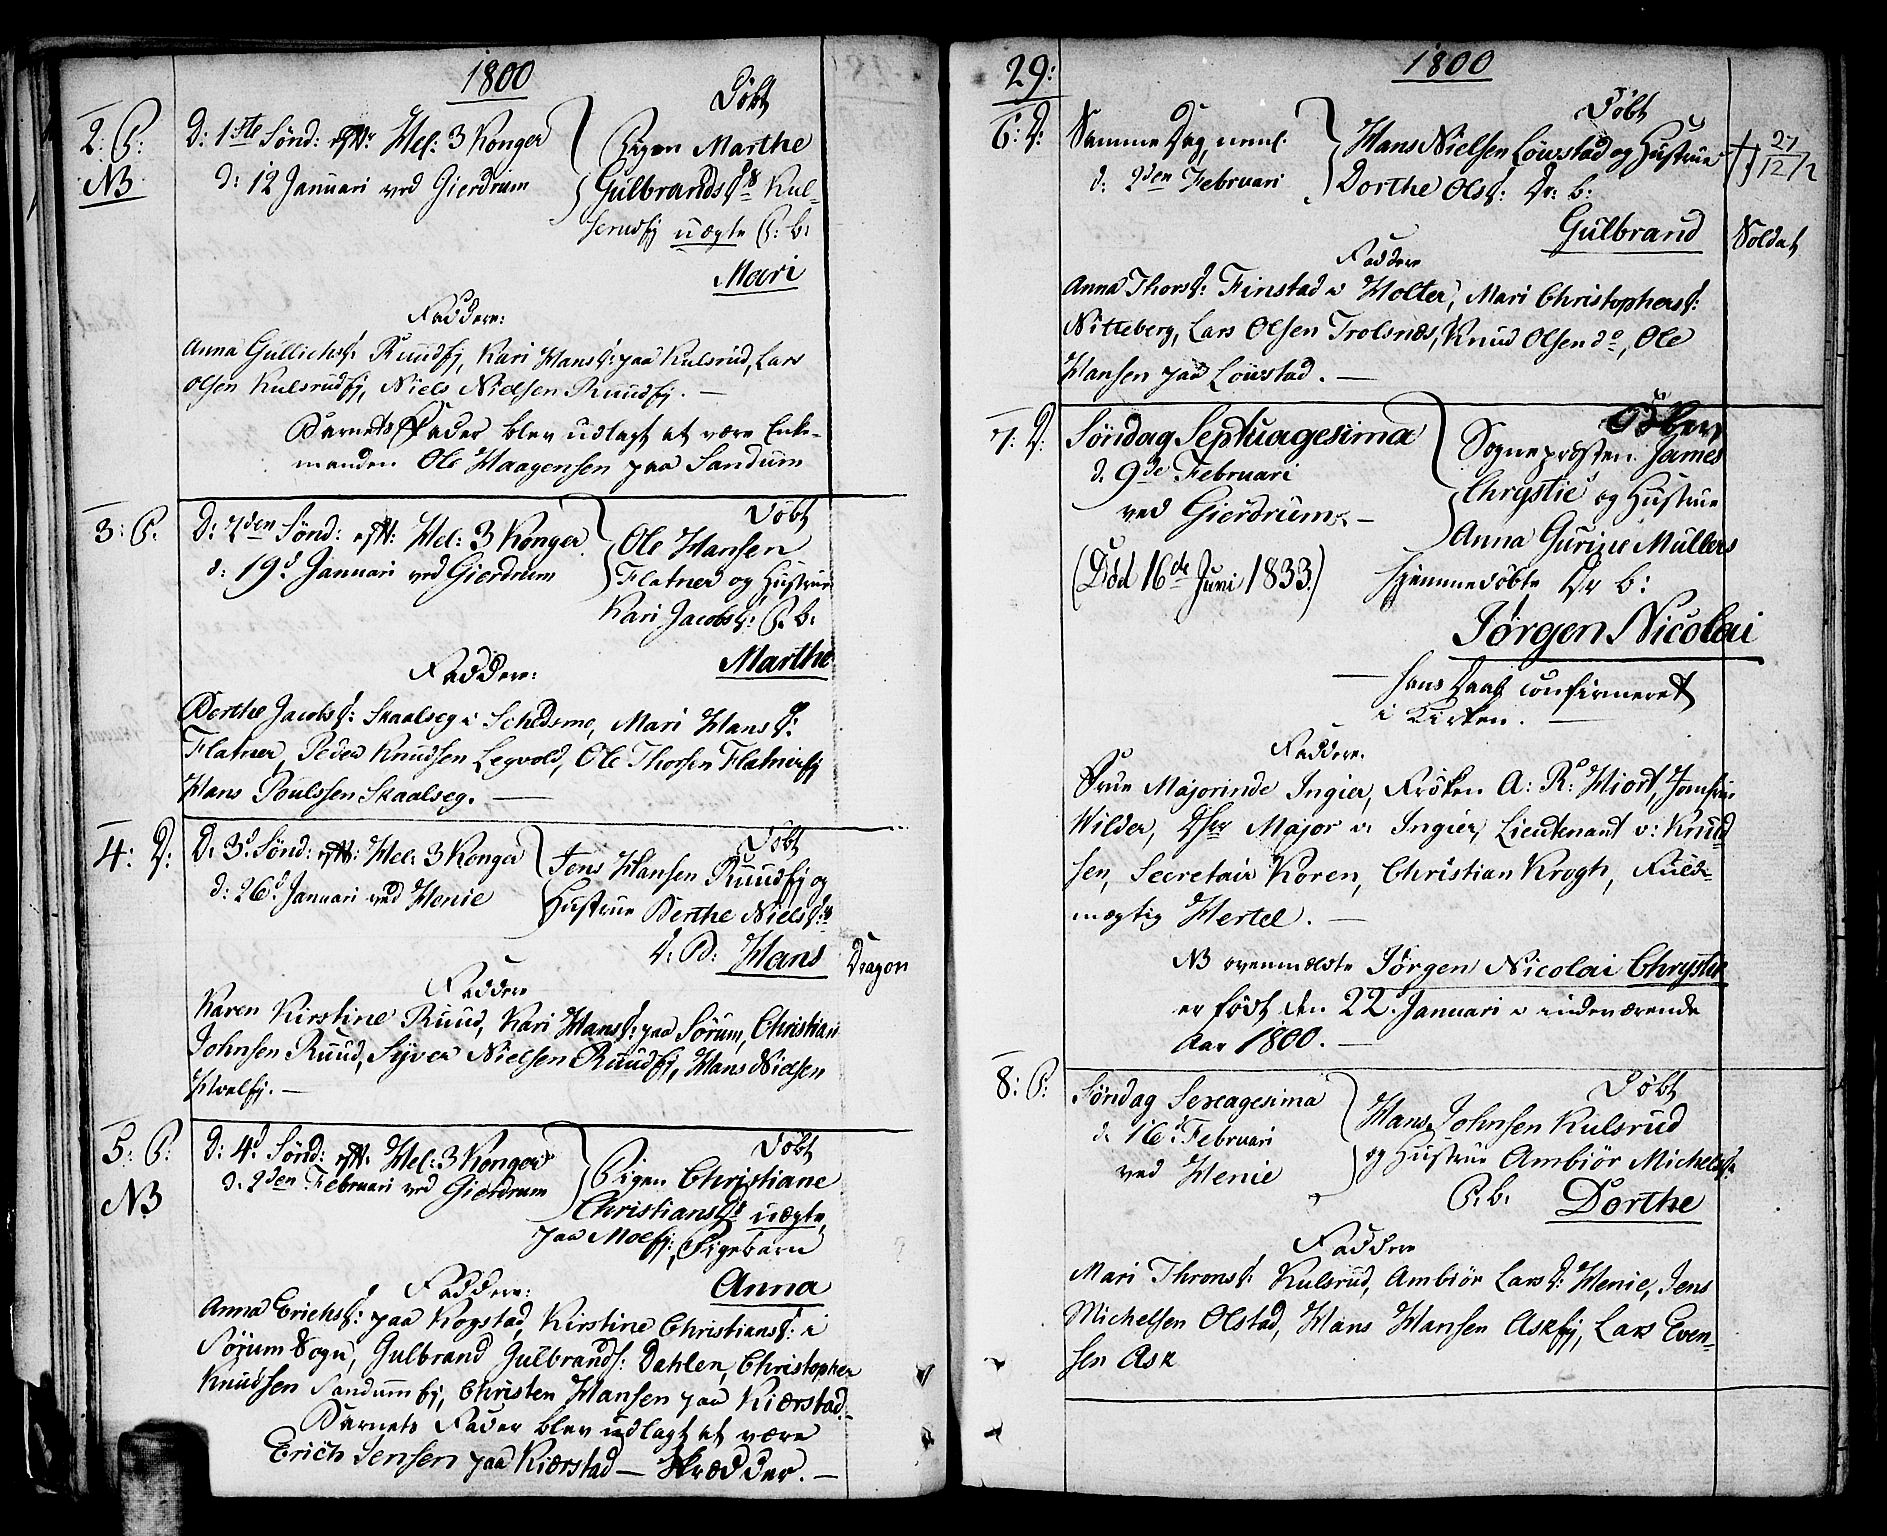 1800
2: P:
NB
D: 1ste Sønd: eftr: Hel: 3 Konger
d: 12 Januari ved Gierdrum
Døbt
Pigen Marthe
Gulbrandsdr Kul-
serudej uægte P: b:
Mari
Faddere:
Anna Gullichsd: Ruudej, Kari Hansd: paa Kulsrud, Lars
Olsen Kulsrudej, Niels Nielsen Ruudej. —
Barnets Fader blev udlagt at være Enke-
manden Ole Haagensen paa Sandum
3: P.
D: 2den Sønd: eftr: Hel: 3 Konger
d: 19d Januari ved Gierdrum
Døbt
Ole Hansen
Flatner og Hustrue
Kari Jacobsd: P. b:
Marthe
Faddere:
Berthe Jacobsd: Skaalseg i Schedsmo, Mari Hansd:
Flatner, Peder Knudsen Legvold, Ole Thorsen Flatnerej
Hans Poulssen Skaalseg. —
4: D:
D: 3d Sønd: eftr: Hel: 3 Konger
d: 26d Januari ved Henie
Døbt
Jens Hansen Ruudej og
Hustrue Berthe Nielsdr
D: B: Hans
Dragon
Faddere
Karen Kirstine Ruud, Kari Hansd: paa Sørum, Christian
Johnsen Ruud, Syver Nielsen Ruudej, Hans Nielsen
Hvalej. —
5: P:
NB
D: 4d Sønd: eftr: Hel: 3 Konger
d. 2den Februari ved Gierdrum
Døbt
Pigen Christiane
Christiansdr uægte,
paa Moeej, Pigebarn
Anna
Faddere:
Anna Erichsd: paa Kogstad, Kirstine Christiansd: i
Sørum Sogn, Gulbrand Gulbrands: Dahlen, Christopher
Knudsen Sandumej, Christen Hansen paa Kiærstad.
Barnets Fader blev udlagt at være
Erich Jensen paa Kiærstad — Skrædder. —
29:
1800
6: D:
Samme Dag, neml.
d: 2den Februari
Døbt
Hans Nielsen Løwstad og Hustrue
Dorthe Olsd: Dr: b:
Gulbrand
Soldat
Faddere
Anna Thorsd: Finstad v Holter, Mari Christophersd:
Nitteberg, Lars Olsen Trolsnæs, Knud Olsen do, Ole
Hansen paa Løwstad. —
7: D:
Søndag Septuagesima
d. 9de Februari
ved Gierdrum. —
(Død 16de Juni 1833.)
Døbt
Sognepræsten James
Chrystie og Hustrue
Anna Gurine Mullers
hjemmedøbte Dr b:
Jørgen Nicolai
— hans Daab confirmeret
i Kirken. —
Faddere.
Frue Majorinde Ingier, Frøken A: R: Hiort, Jomfrue
Wilder, Hr Major v: Ingier, Lieutenant v: Knud
sen, Secretair Koren, Christian Krogh, Fuld-
mægtig Hertel. —
NB ovenmeldte Jørgen Nicolai Chrystie
er født den 22. Januari i indeværende
Aar 1800. —
8: P:
Søndag Sexagesima
d. 16d Februari
ved Henie
Døbt
Hans Johnsen Kulsrud
og Hustrue Ambiør Michelsd:
P. b. Dorthe
Faddere
Mari Thronsd: Kulsrud, Ambiør Larsd: Henie, Jens
Michelsen Olstad, Hans Hansen Askej, Lars Even-
sen Ask